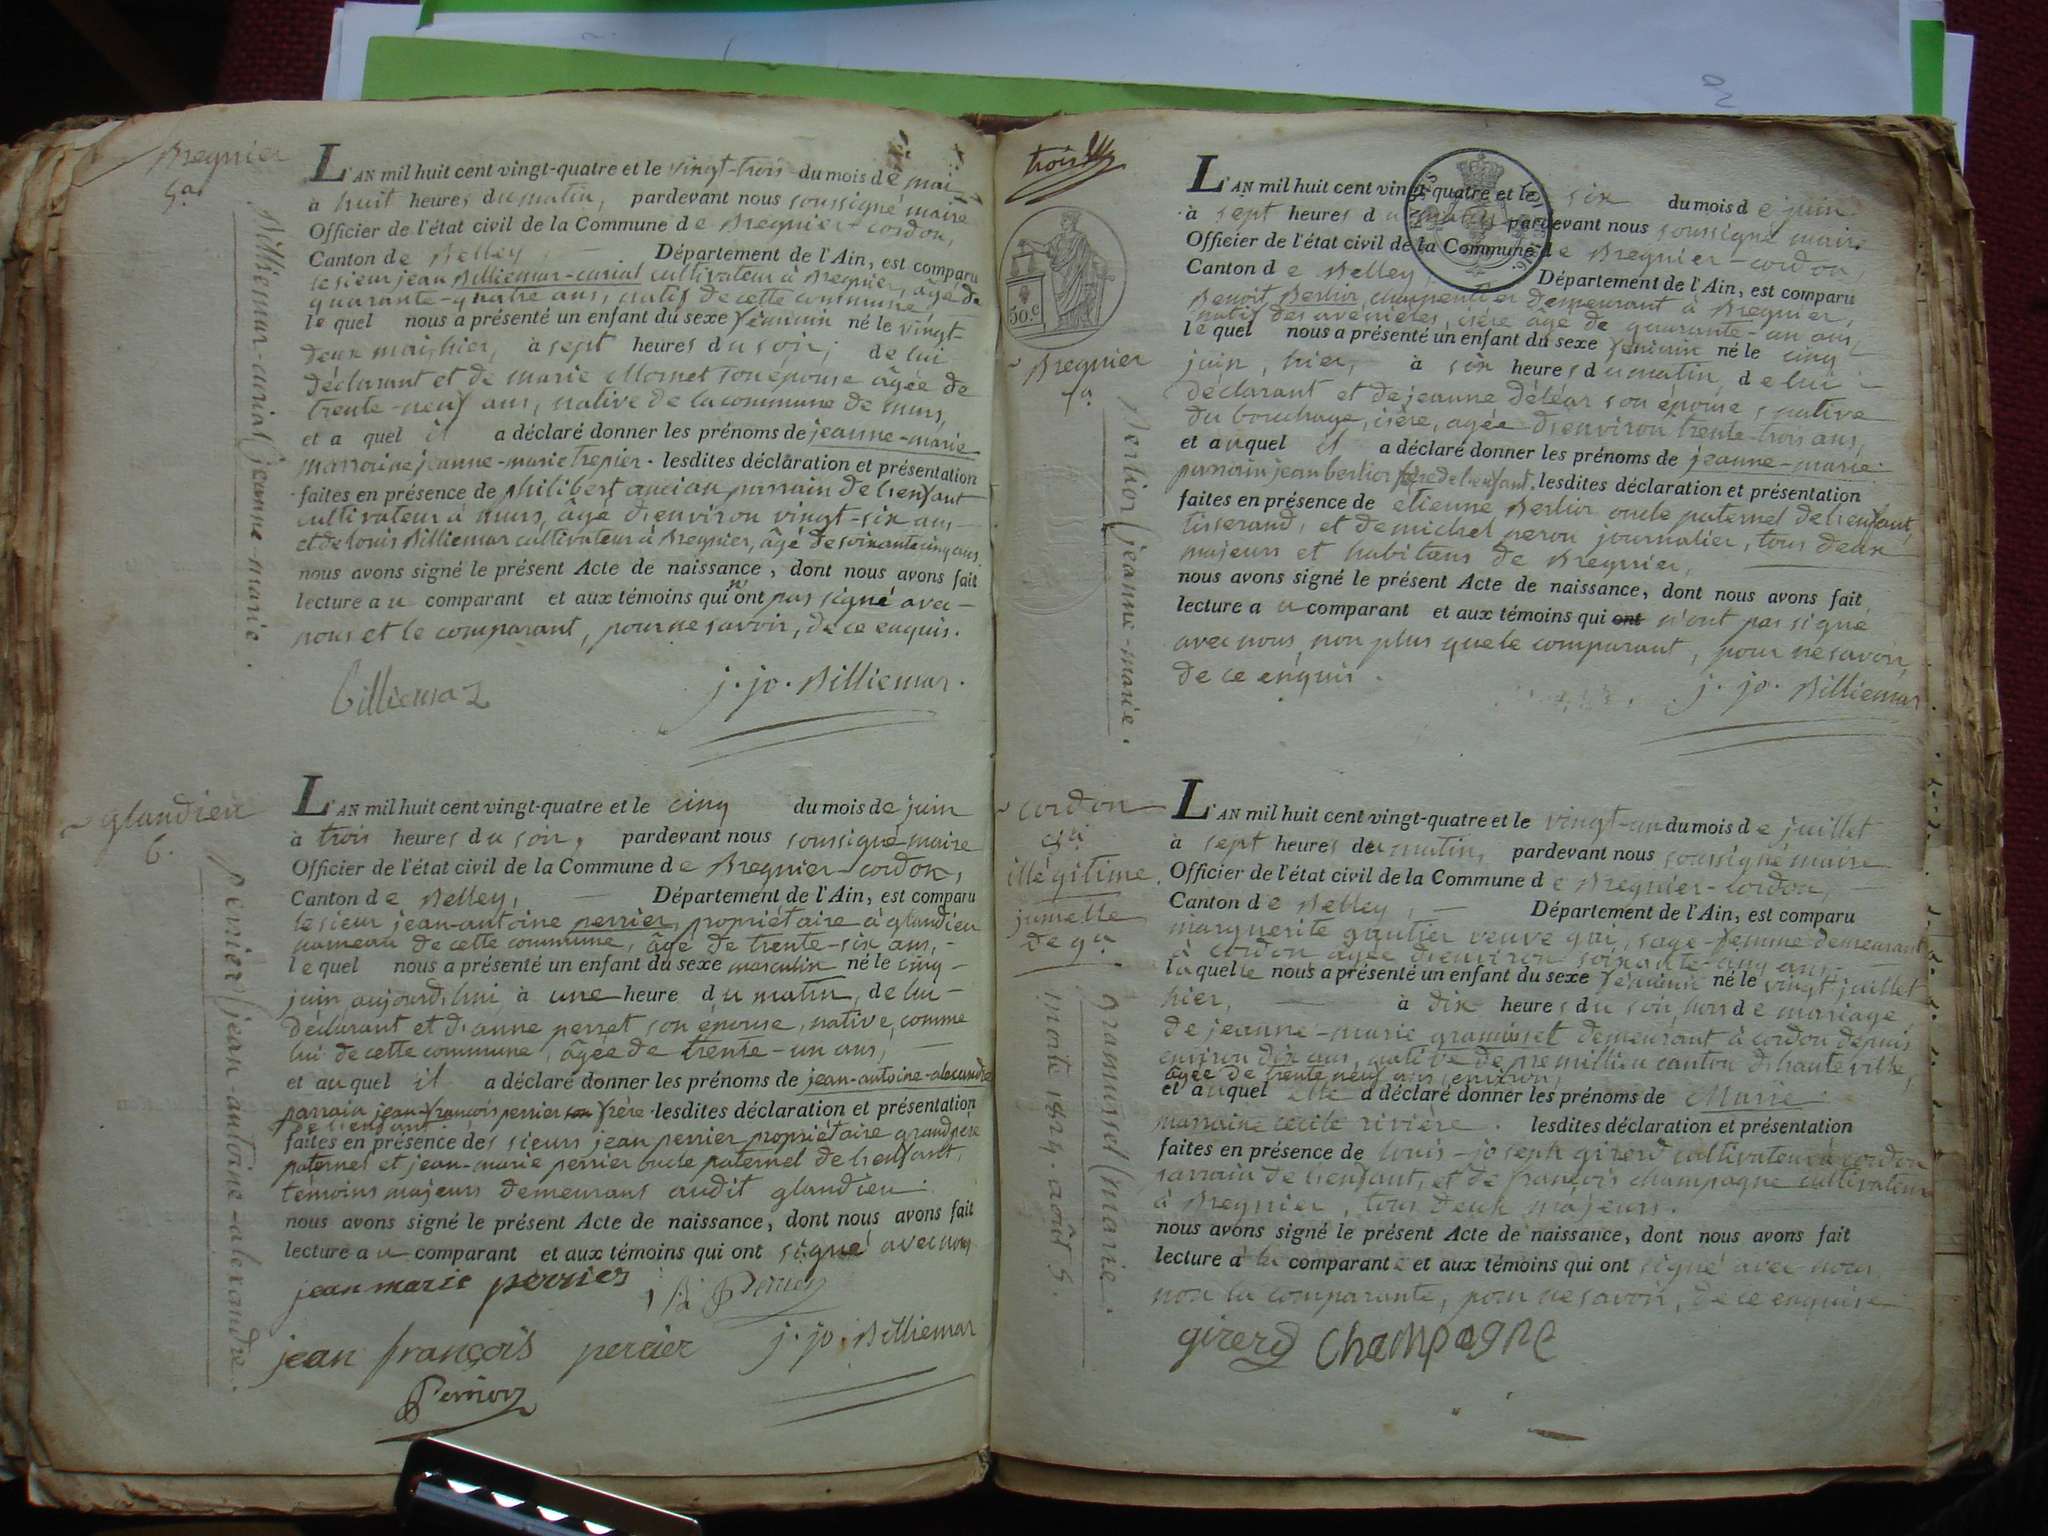 Bregnier
5.a
Billiemaz-curial (jeanne-marie.
L'AN mil huit cent vingt-quatre et le vingt-trois du mois de mai
à huit heures du matin, pardevant nous soussigné maire
Officier de l'état civil de la Commune de Bregnier-cordon,
Canton de Belley Département de l'Ain, est comparu
le sieur jean Billiemaz-curial cultivateur à Bregnier, âgé de
quarante-quatre ans, natif de cette commune
le quel nous a présenté un enfant du sexe féminin né le vingt-
deux mai, hier, à sept heures du soir, de lui
déclarant et de marie Mornet son épouse âgée de
trente-neuf ans, native de la commune de murs,
et a quel il a déclaré donner les prénoms de jeanne-marie
marraine jeanne-marie trepier. lesdites déclaration et présentation
faites en présence de philibert ancian parrain de l'enfant
cultivateur à murs, âgé d'environ vingt-six ans
et de louis Billiemaz cultivateur à Bregnier, âgé de soixante cinq ans
nous avons signé le présent Acte de naissance, dont nous avons fait
lecture au comparant et aux témoins qui n'ont pas signé avec
nous et le comparant, pour ne savoir, de ce enquis.
billiemaz j. jo. Billiemaz.
glandieu
6.
perrier (jean-antoine-alexandre.
L'AN mil huit cent vingt-quatre et le cinq du mois de juin
à trois heures du soir, pardevant nous soussigné maire
Officier de l'état civil de la Commune de Bregnier-cordon,
Canton de Belley, Département de l'Ain, est comparu
le sieur jean-antoine perrier, propriétaire à glandieu
hameau de cette commune, âgé de trente-six ans,
le quel nous a présenté un enfant du sexe masculin né le cinq
juin, aujourd'hui à une heure du matin, de lui
déclarant et d'anne perret son épouse, native, comme
lui de cette commune, âgée de trente-un ans,
et auquel il a déclaré donner les prénoms de jean-antoine-alexandre
parrain jean-françois perrier son frère lesdites déclaration et présentation
de l'enfant
faites en présence des sieurs jean perrier propriétaire grand père
paternel et jean-marie perrier oncle paternel de l'enfant,
témoins majeurs demeurans audit glandieu.
nous avons signé le présent Acte de naissance, dont nous avons fait
lecture au comparant et aux témoins qui ont signé avec nous
jean marie perrier Perrier
jean françois perrier j. jo. Billiemaz
Perrier
trois
30.c
Bregnier
7.a
Berlior (jeanne-marie.
L'AN mil huit cent vingt-quatre et le six du mois de juin
à sept heures du matin pardevant nous soussigné maire
Officier de l'état civil de la Commune de Bregnier-cordon,
Canton de Belley, Département de l'Ain, est comparu
Benoit Berlior, charpentier demeurant à Bregnier,
natif des avenieres, isère âgé de quarante-un ans,
le quel nous a présenté un enfant du sexe féminin né le cinq
juin, hier, à six heures du matin, de lui
déclarant et de jeanne déléar son épouse, native
du bouchage, isère, agée d'environ trente-trois ans,
et auquel il a déclaré donner les prénoms de jeanne-marie
parrain jean berlior frère de l'enfant. lesdites déclaration et présentation
faites en présence de etienne Berlior oncle paternel de l'enfant,
tisserand, et de michel peron journalier, tous deux
majeurs et habitans de Bregnier,
nous avons signé le présent Acte de naissance, dont nous avons fait
lecture au comparant et aux témoins qui ont n'ont pas signé
avec nous, non plus que le comparant, pour ne savoir
de ce enquis. j. jo. Billiemaz
cordon
illégitime
jumelle
de
Gramusset (marie.
morte 1824. août 5.
L'AN mil huit cent vingt-quatre et le vingt-un du mois de juillet
à sept heures du matin, pardevant nous soussigné maire
Officier de l'état civil de la Commune de Bregnier-cordon,
Canton de Belley, Département de l'Ain, est comparu
marguerite gautier veuve gai, sage-femme demeurant
à cordon âgée d'environ soixante-cinq ans
laquelle nous a présenté un enfant du sexe féminin né le vingt juillet
hier, à dix heures du soir, hors de mariage
de jeanne-marie gramusset demeurant à cordon depuis
environ dix ans, native de premillieu canton d'hauteville,
âgée de trente neuf ans, environ,
et auquel elle a déclaré donner les prénoms de Marie
marraine cecile rivière. lesdites déclaration et présentation
faites en présence de louis-joseph girerd cultivateur à cordon
parrain de l'enfant, et de françois champagne cultivateur
à Bregnier, tous deux majeurs.
nous avons signé le présent Acte de naissance, dont nous avons fait
lecture à la comparante et aux témoins qui ont signé avec nous
non la comparante, pour ne savoir, de ce enquise
girerd Champagne